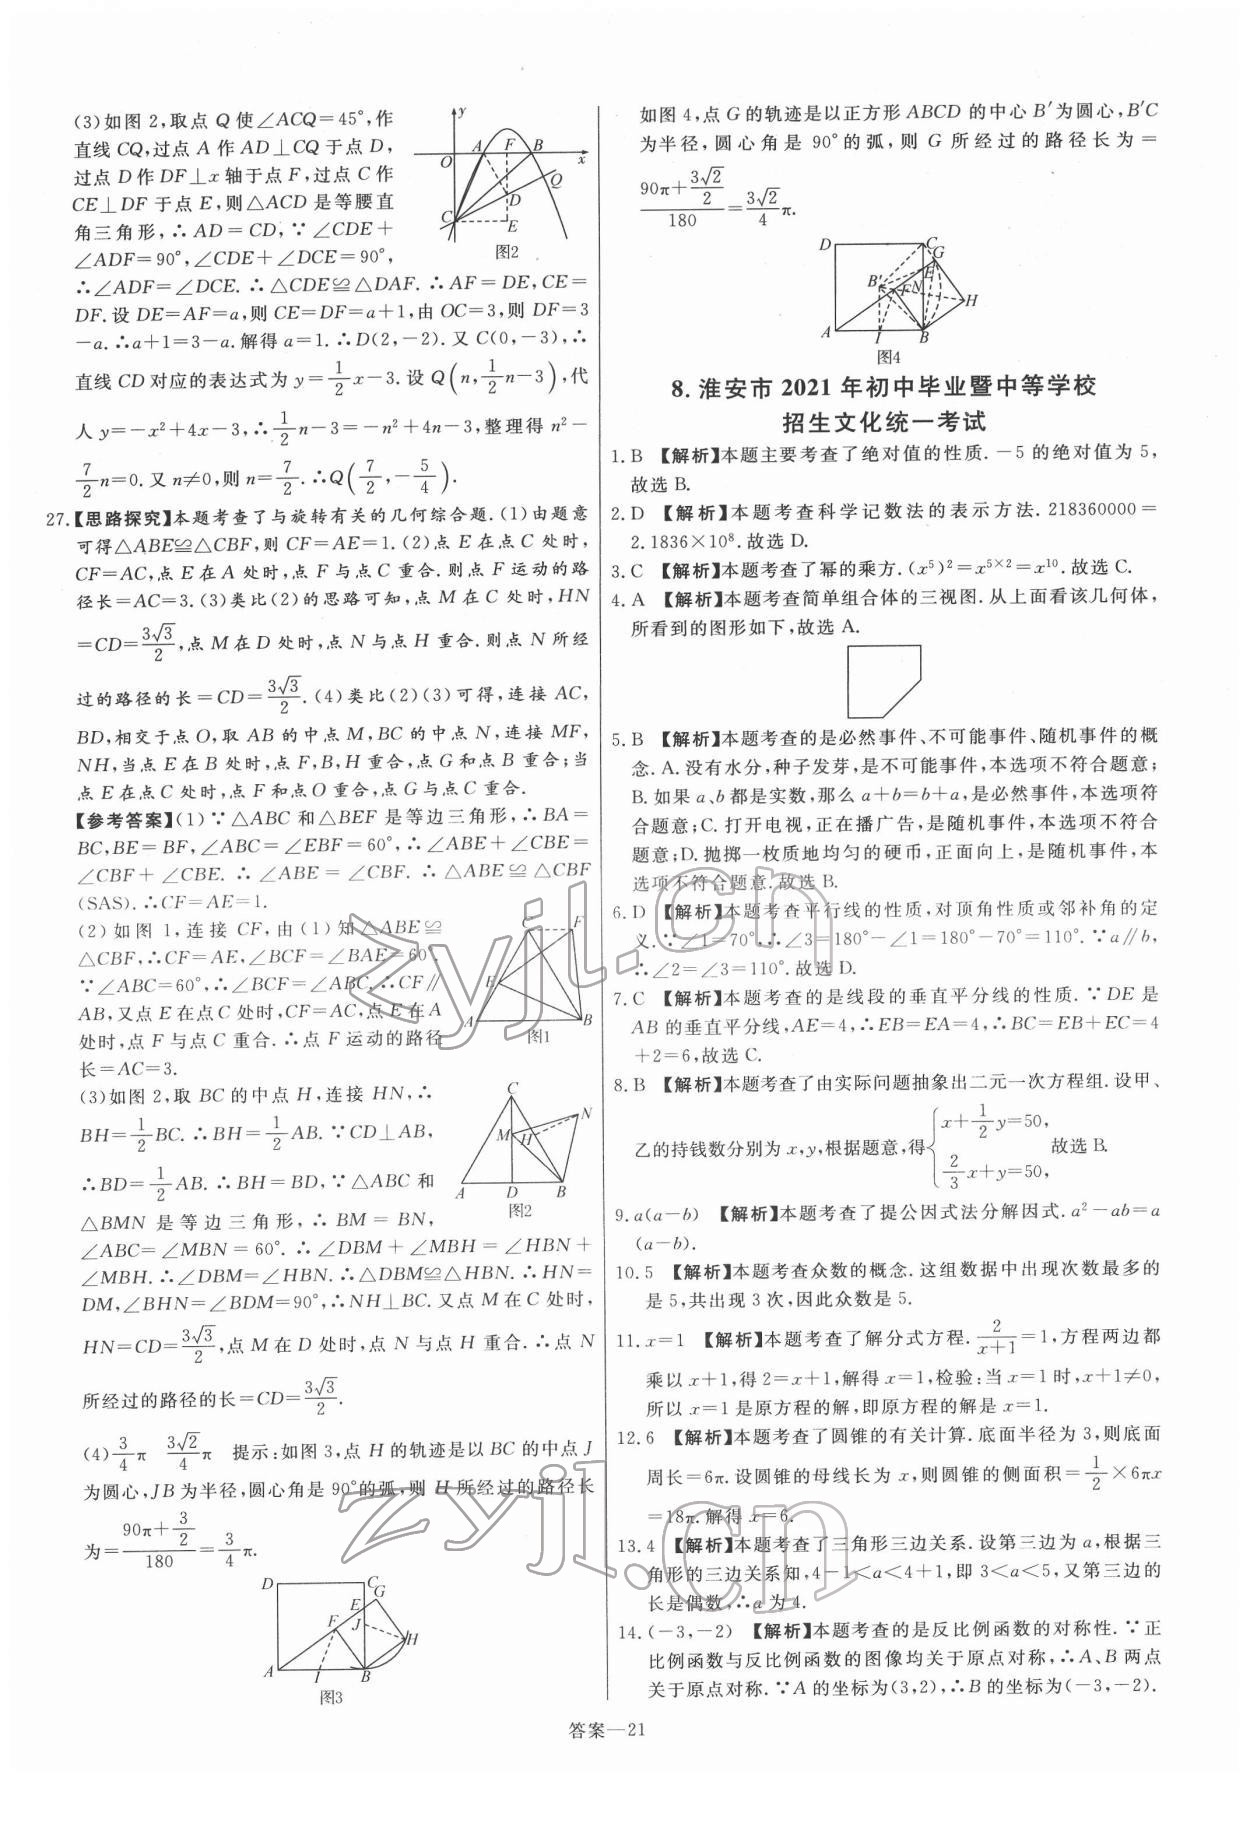 (3)如图 2,取点 Q 使∠ACQ=45°,作
直线 CQ,过点 A 作 AD⊥CQ 于点 D,
过点 D 作 DF⊥x 轴于点 F,过点 C 作
CE⊥DF 于点 E,则△ACD 是等腰直
角三角形,∴AD=CD,∵∠CDE+
∠ADF=90°,∠CDE+∠DCE=90°,
y
A F B
O x
Q
D
C
E
图2
∴∠ADF=∠DCE.∴△CDE≌△DAF.∴AF=DE,CE=
DF.设 DE=AF=a,则 CE=DF=a+1,由 OC=3,则 DF=3
-a.∴a+1=3-a.解得 a=1.∴D(2,-2).又 C(0,-3),∴
直线 CD 对应的表达式为 y=1/2x-3.设 Q(n,1/2n-3),代
入 y=-x²+4x-3,∴1/2n-3=-n²+4n-3,整理得 n²-
7/2n=0.又 n≠0,则 n=7/2.∴Q(7/2,-5/4).
27.【思路探究】本题考查了与旋转有关的几何综合题.(1)由题意
可得△ABE≌△CBF,则 CF=AE=1.(2)点 E 在点 C 处时,
CF=AC,点 E 在 A 处时,点 F 与点 C 重合.则点 F 运动的路
径长=AC=3.(3)类比(2)的思路可知,点 M 在 C 处时,HN
=CD=3√3/2,点 M 在 D 处时,点 N 与点 H 重合.则点 N 所经
过的路径的长=CD=3√3/2.(4)类比(2)(3)可得,连接 AC,
BD,相交于点 O,取 AB 的中点 M,BC 的中点 N,连接 MF,
NH,当点 E 在 B 处时,点 F,B,H 重合,点 G 和点 B 重合;当
点 E 在点 C 处时,点 F 和点 O 重合,点 G 与点 C 重合.
【参考答案】(1)∵△ABC 和△BEF 是等边三角形,∴BA=
BC,BE=BF,∠ABC=∠EBF=60°,∴∠ABE+∠CBE=
∠CBF+∠CBE.∴∠ABE=∠CBF.∴△ABE≌△CBF
(SAS).∴CF=AE=1.
(2)如图 1,连接 CF,由(1)知△ABE≌
△CBF,∴CF=AE,∠BCF=∠BAE=60°.
∵∠ABC=60°,∴∠BCF=∠ABC.∴CF∥
AB,又点 E 在点 C 处时,CF=AC,点 E 在 A
处时,点 F 与点 C 重合.∴点 F 运动的路径
长=AC=3.
C F
E
A B
图1
(3)如图 2,取 BC 的中点 H,连接 HN,∴
BH=1/2BC.∴BH=1/2AB.∵CD⊥AB,
∴BD=1/2AB.∴BH=BD,∵△ABC 和
△BMN 是等边三角形,∴BM=BN,
C
N
M H
A D B
图2
∠ABC=∠MBN=60°.∴∠DBM+∠MBH=∠HBN+
∠MBH.∴∠DBM=∠HBN.∴△DBM≌△HBN.∴HN=
DM,∠BHN=∠BDM=90°,∴NH⊥BC.又点 M 在 C 处时,
HN=CD=3√3/2,点 M 在 D 处时,点 N 与点 H 重合.∴点 N
所经过的路径的长=CD=3√3/2.
(4)3/4π 3√2/4π 提示:如图 3,点 H 的轨迹是以 BC 的中点 J
为圆心,JB 为半径,圆心角是 90°的弧,则 H 所经过的路径长
为=(90π+3/2)/180=3/4π.
D C
E G
F J
H
A I B
图3
如图 4,点 G 的轨迹是以正方形 ABCD 的中心 B′为圆心,B′C
为半径,圆心角是 90°的弧,则 G 所经过的路径长为=
(90π+3√2/2)/180=3√2/4π.
D C
G
E
B′ F N
H
A I B
图4
8. 淮安市 2021 年初中毕业暨中等学校
招生文化统一考试
1.B 【解析】本题主要考查了绝对值的性质.-5 的绝对值为 5,
故选 B.
2.D 【解析】本题考查科学记数法的表示方法.218360000=
2.1836×10⁸.故选 D.
3.C 【解析】本题考查了幂的乘方.(x⁵)²=x⁵ˣ²=x¹⁰.故选 C.
4.A 【解析】本题考查简单组合体的三视图.从上面看该几何体,
所看到的图形如下,故选 A.
5.B 【解析】本题考查的是必然事件、不可能事件、随机事件的概
念.A.没有水分,种子发芽,是不可能事件,本选项不符合题意;
B.如果 a、b 都是实数,那么 a+b=b+a,是必然事件,本选项符
合题意;C.打开电视,正在播广告,是随机事件,本选项不符合
题意;D.抛掷一枚质地均匀的硬币,正面向上,是随机事件,本
选项不符合题意.故选 B.
6.D 【解析】本题考查平行线的性质,对顶角性质或邻补角的定
义.∵∠1=70°,∴∠3=180°-∠1=180°-70°=110°.∵a∥b,
∴∠2=∠3=110°.故选 D.
7.C 【解析】本题考查的是线段的垂直平分线的性质.∵DE 是
AB 的垂直平分线,AE=4,∴EB=EA=4,∴BC=EB+EC=4
+2=6,故选 C.
8.B 【解析】本题考查了由实际问题抽象出二元一次方程组.设甲、
乙的持钱数分别为 x,y,根据题意,得{x+1/2y=50, 2/3x+y=50, 故选 B.
9.a(a-b) 【解析】本题考查了提公因式法分解因式.a²-ab=a
(a-b).
10.5 【解析】本题考查众数的概念.这组数据中出现次数最多的
是 5,共出现 3 次,因此众数是 5.
11.x=1 【解析】本题考查了解分式方程.2/(x+1)=1,方程两边都
乘以 x+1,得 2=x+1,解得 x=1,检验:当 x=1 时,x+1≠0,
所以 x=1 是原方程的解,即原方程的解是 x=1.
12.6 【解析】本题考查了圆锥的有关计算.底面半径为 3,则底面
周长=6π.设圆锥的母线长为 x,则圆锥的侧面积=1/2×6πx
=18π.解得 x=6.
13.4 【解析】本题考查了三角形三边关系.设第三边为 a,根据三
角形的三边关系知,4-1<a<4+1,即 3<a<5,又第三边的
长是偶数,∴a 为 4.
14.(-3,-2) 【解析】本题考查的是反比例函数的对称性.∵正
比例函数与反比例函数的图像均关于原点对称,∴A、B 两点
关于原点对称.∵A 的坐标为(3,2),∴B 的坐标为(-3,-2).
答案—21
zyjl.cn
zyjl.cn